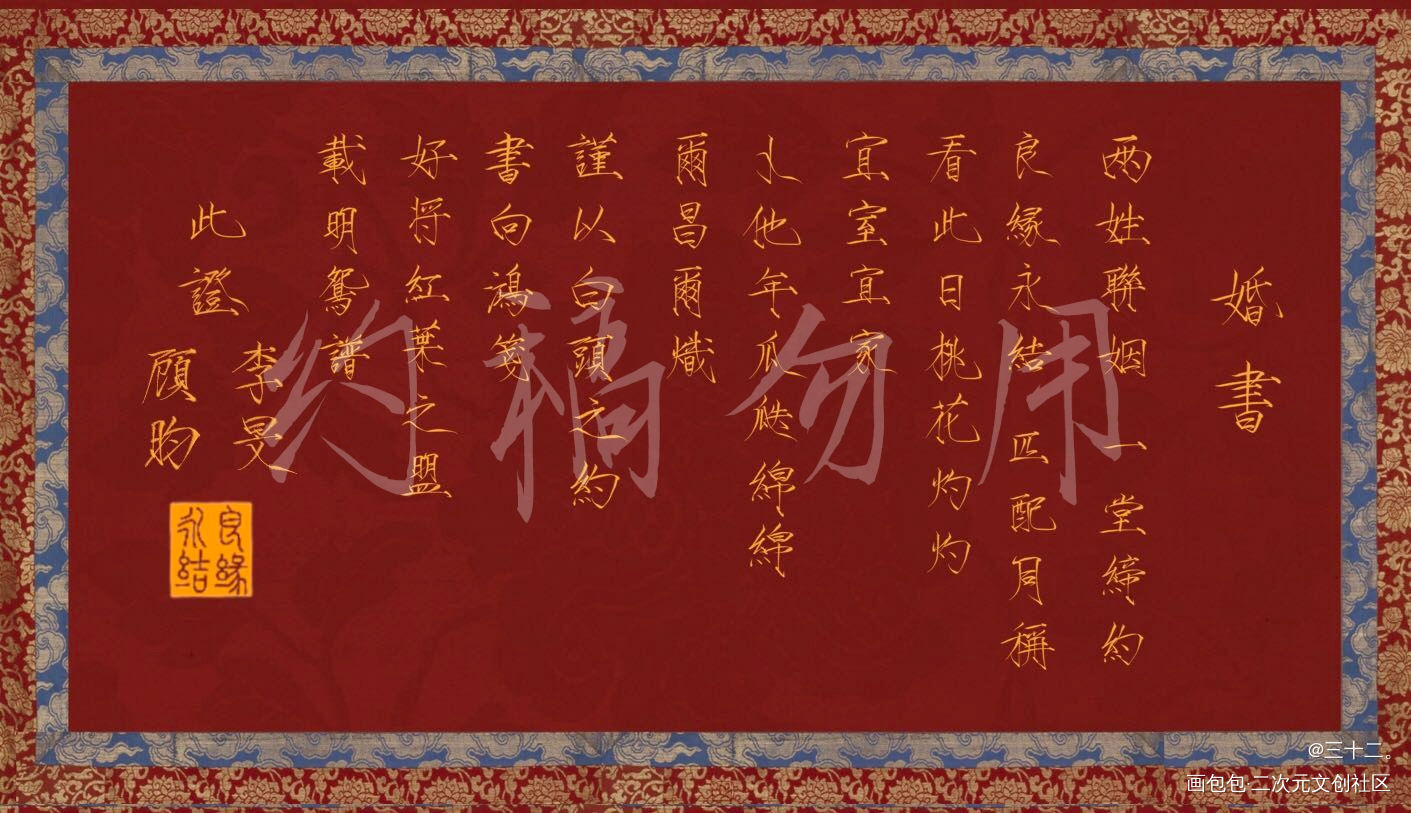 婚書
两姓聯姻一堂締約
良緣永結匹配同稱
看此日桃花灼灼
宜室宜家
卜他年瓜瓞綿綿
爾昌爾熾
謹以白頭之約
書向鴻箋
好将紅葉之盟
載明鴛譜
此證
李旻
顾昀
良缘永结
约稿勿用
@三十二。
画包包·二次元文创社区